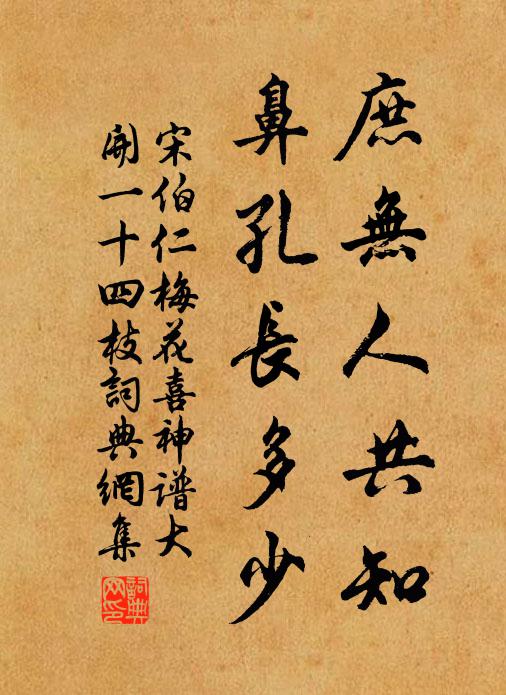 庶無人共知
鼻孔長多少
宋伯仁梅花喜神谱大
開一十四枝詞典網集
詞典網印